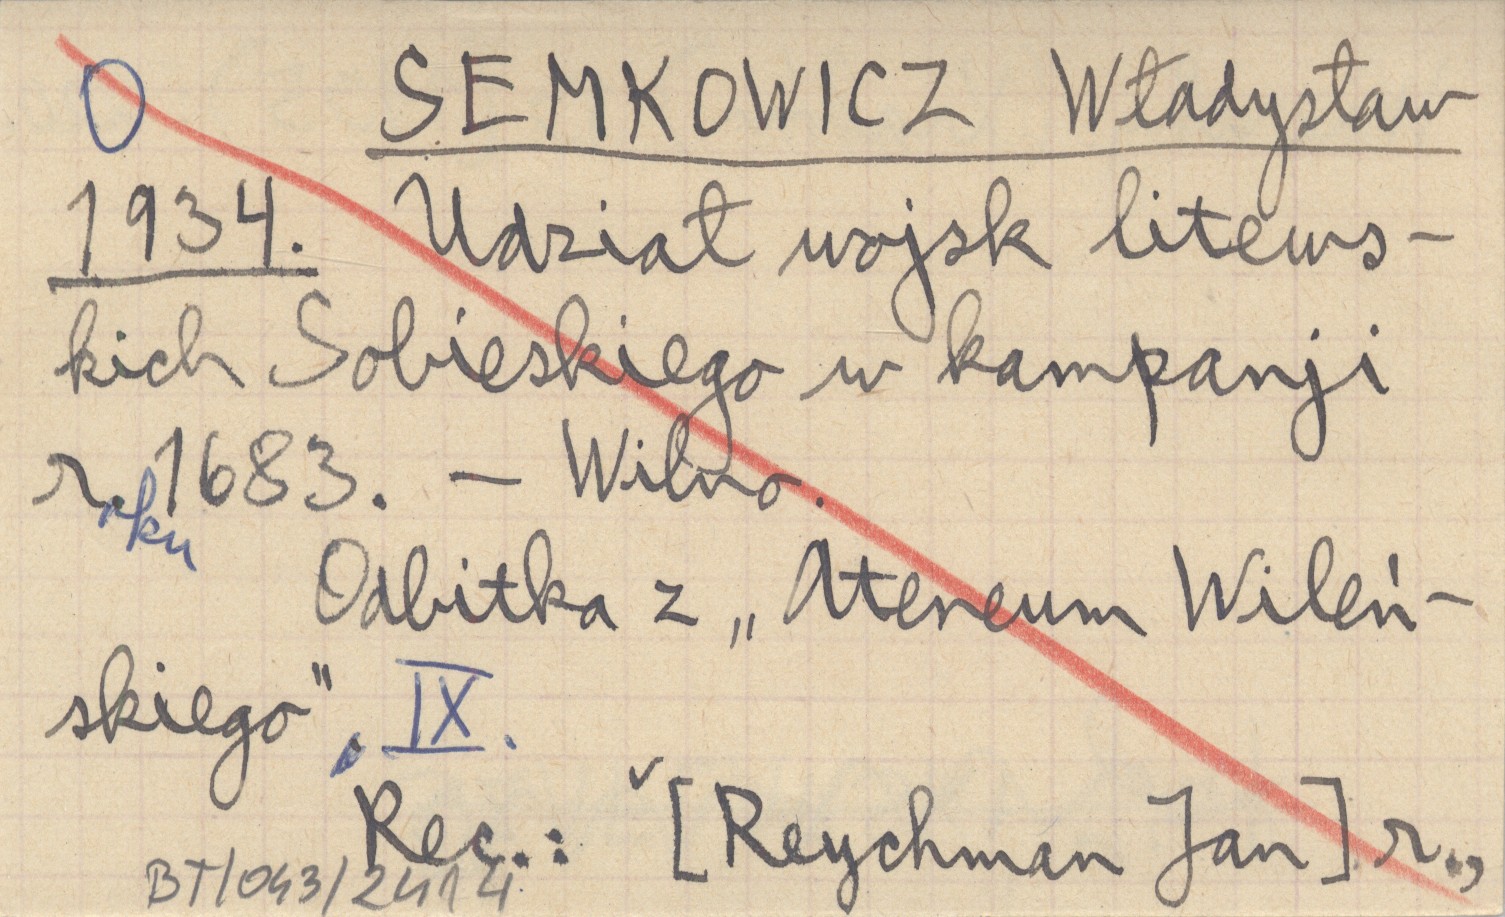 O SEMKOWICZ Władysław
1934. Udział wojsk litews-
kich Sobieskiego w kampanji
r. 1683. — Wilno.
oku
Odbitka z „Ateneum Wileń-
skiego", IX.
Rec.: [Reychman Jan] r.,
BT/043/2414